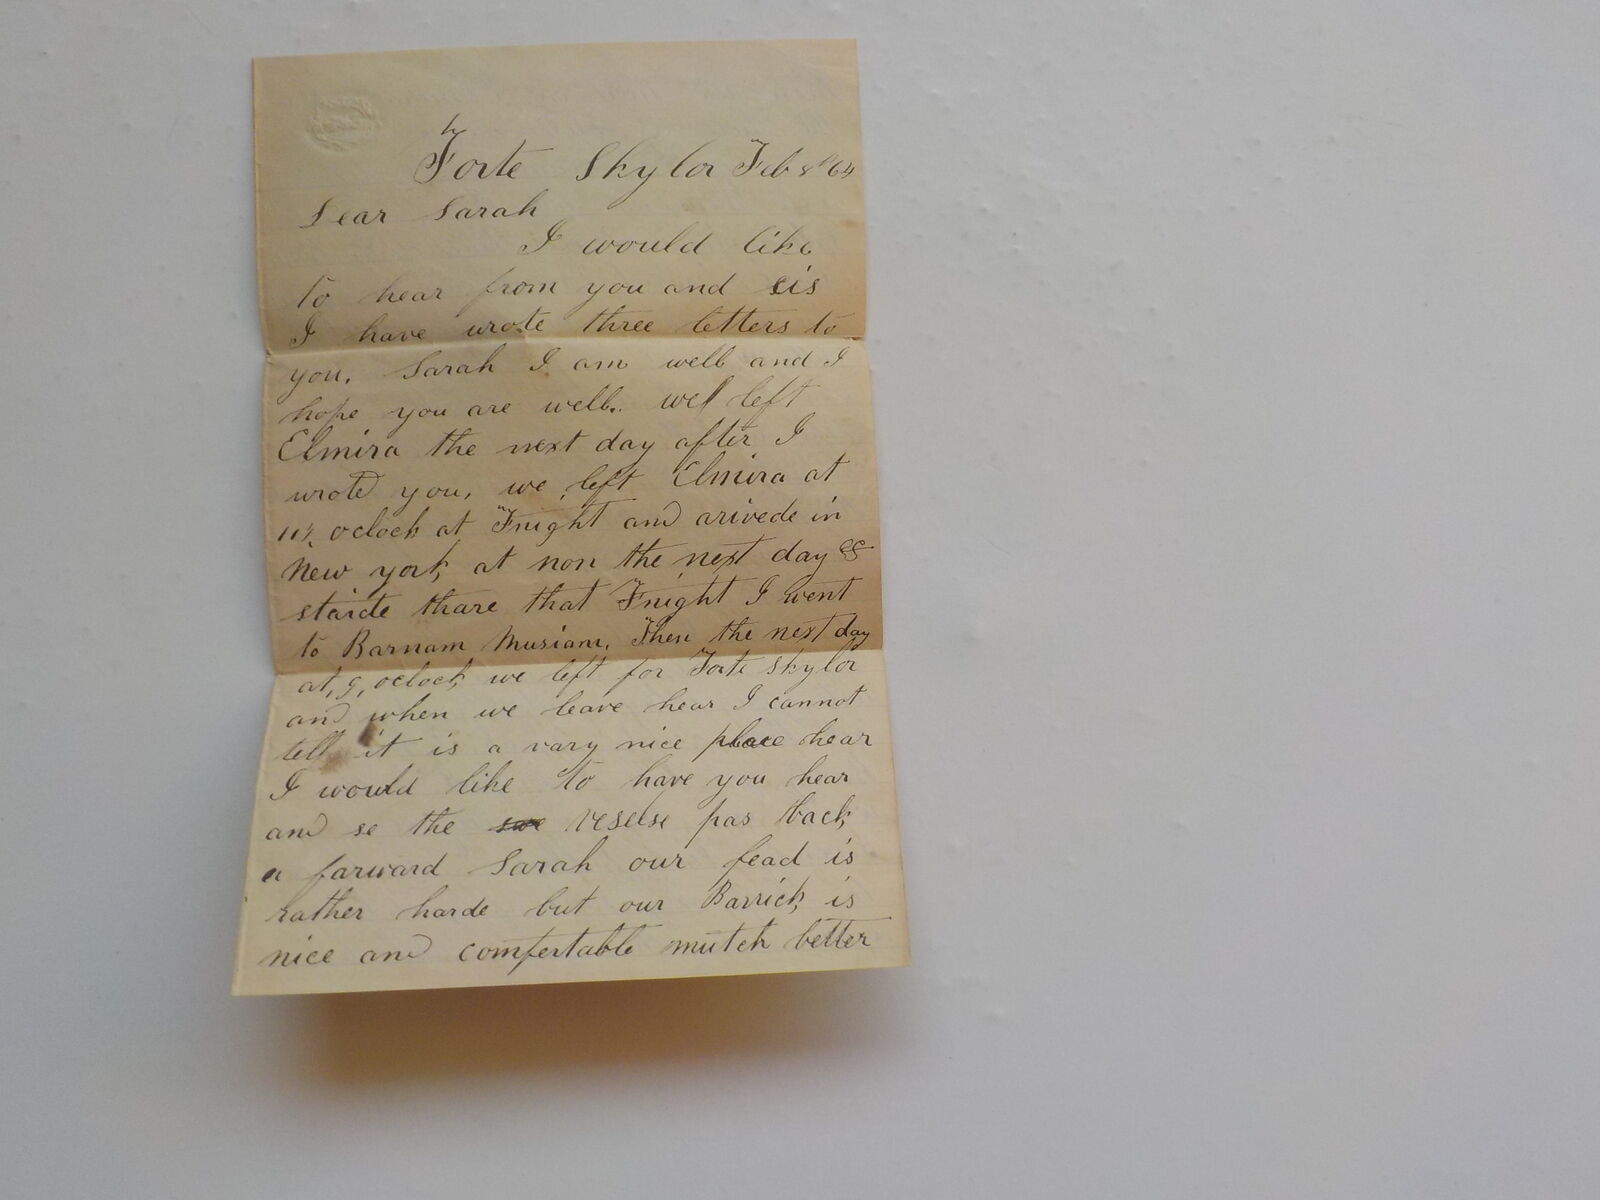 Forte Skylor Feb 8th 64
Dear Sarah
I would like
to hear from you and sis
I have wrote three letters to
you. Sarah I am well and I
hope you are well. wel left
Elmira the next day after I
wrote you, we left Elmira at
oclock at Fnight and arivede in
New york at non the next day &
staide thare that Fnight I went
to Barnam Musiam, Then the next day
at, 9, oclock we left for Forte Skylor
and when we leave hear I cannot
tell it is a vary nice place hear
I would like to have you hear
and se the reselse pas back
a farward Sarah our fead is
rather harde but our Barrick is
nice and comfertable mutch better